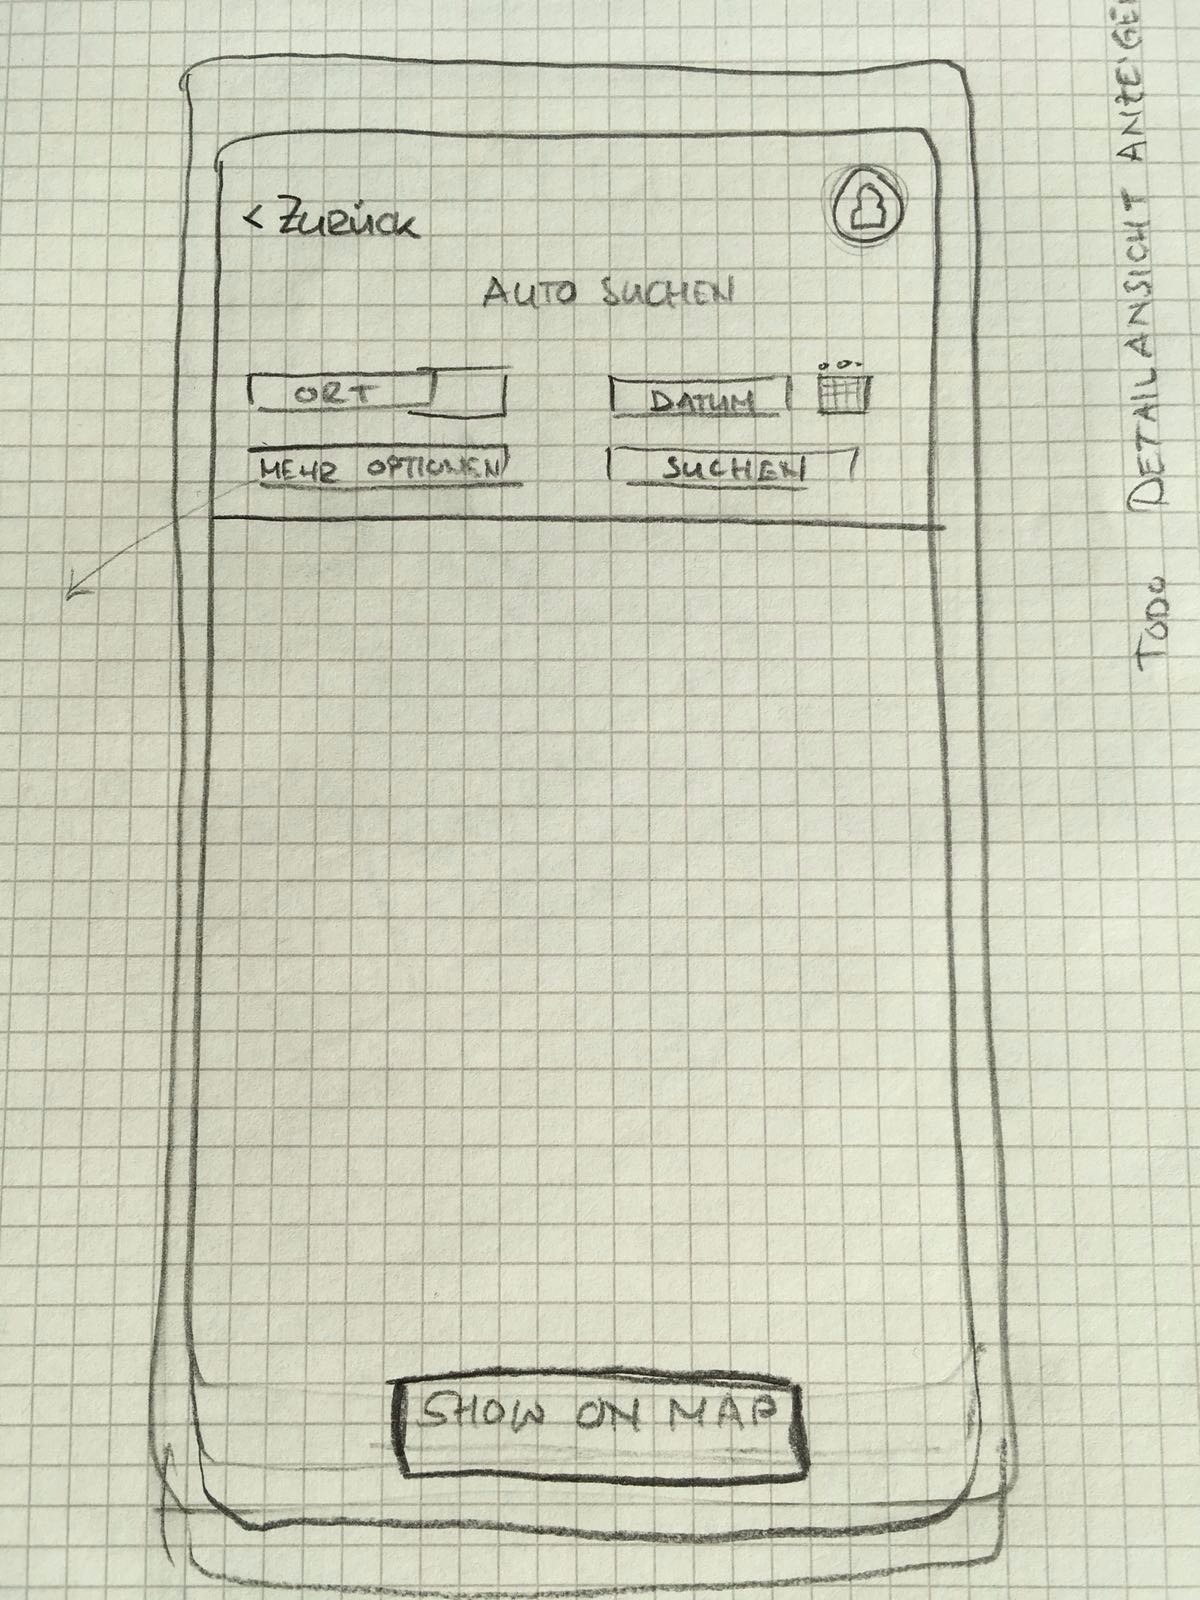 < Zurück
AUTO SUCHEN
ORT
DATUM
MEHR OPTIONEN
SUCHEN
SHOW ON MAP
TODO DETAILANSICHT ANZEIGEN